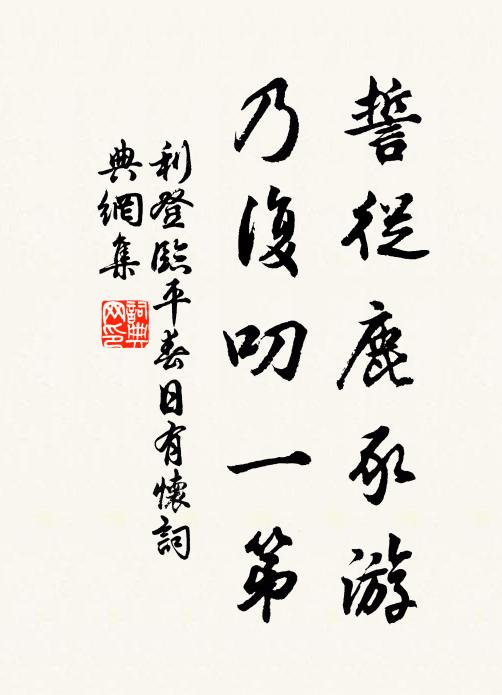 誓從鹿豕游
乃復叨一第
利登臨平春日有懷詞
典網集
詞典
网印